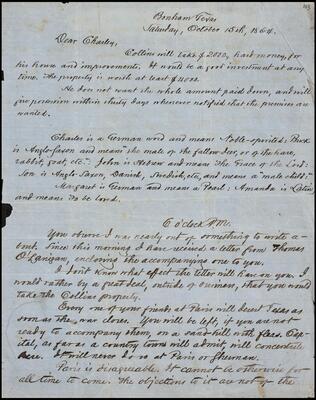 Bonham Texas
Saturday, October 15th, 1864.
Dear Charley,
Collins will take $2000, hard money, for
his house and improvements. It would be a good investment at any
time. The property is worth at least $3000.
He does not want the whole amount paid down, and will
give possession within thirty days whenever notified that the premises are
wanted.
Charles is a German word and means Noble-spirited; Buck
is Anglo-Saxon and means "the male of the fallow deer, or of the hare,
rabbit, goat, etc." John is Hebrew and means "the Grace of the Lord.
Son is Anglo-Saxon, Danish, Swedish, etc, and means a "male child."
Margaret is German and means a Pearl; Amanda is Latin
and means to be loved.
6 o'clock P.M.
You observe I was nearly out of something to write a-
bout. Since this morning I have received a letter from Thomas
O'Lanigan, enclosing the accompanying one to you.
I don't know what effect the letter will have on you. I
would rather by a great deal, outside of business, that you would
take the Collins property.
Every one of your friends at Paris will desert Texas as
soon as the war closes. You will be left, if you are not
ready to accompany them, on a sand hill with fleas. Cap-
ital, as far as a country town will admit, will concentrate
here. It will never do so at Paris or Sherman.
Paris is disagreeable. It cannot be otherwise for
all time to come. The objections to it are not of the